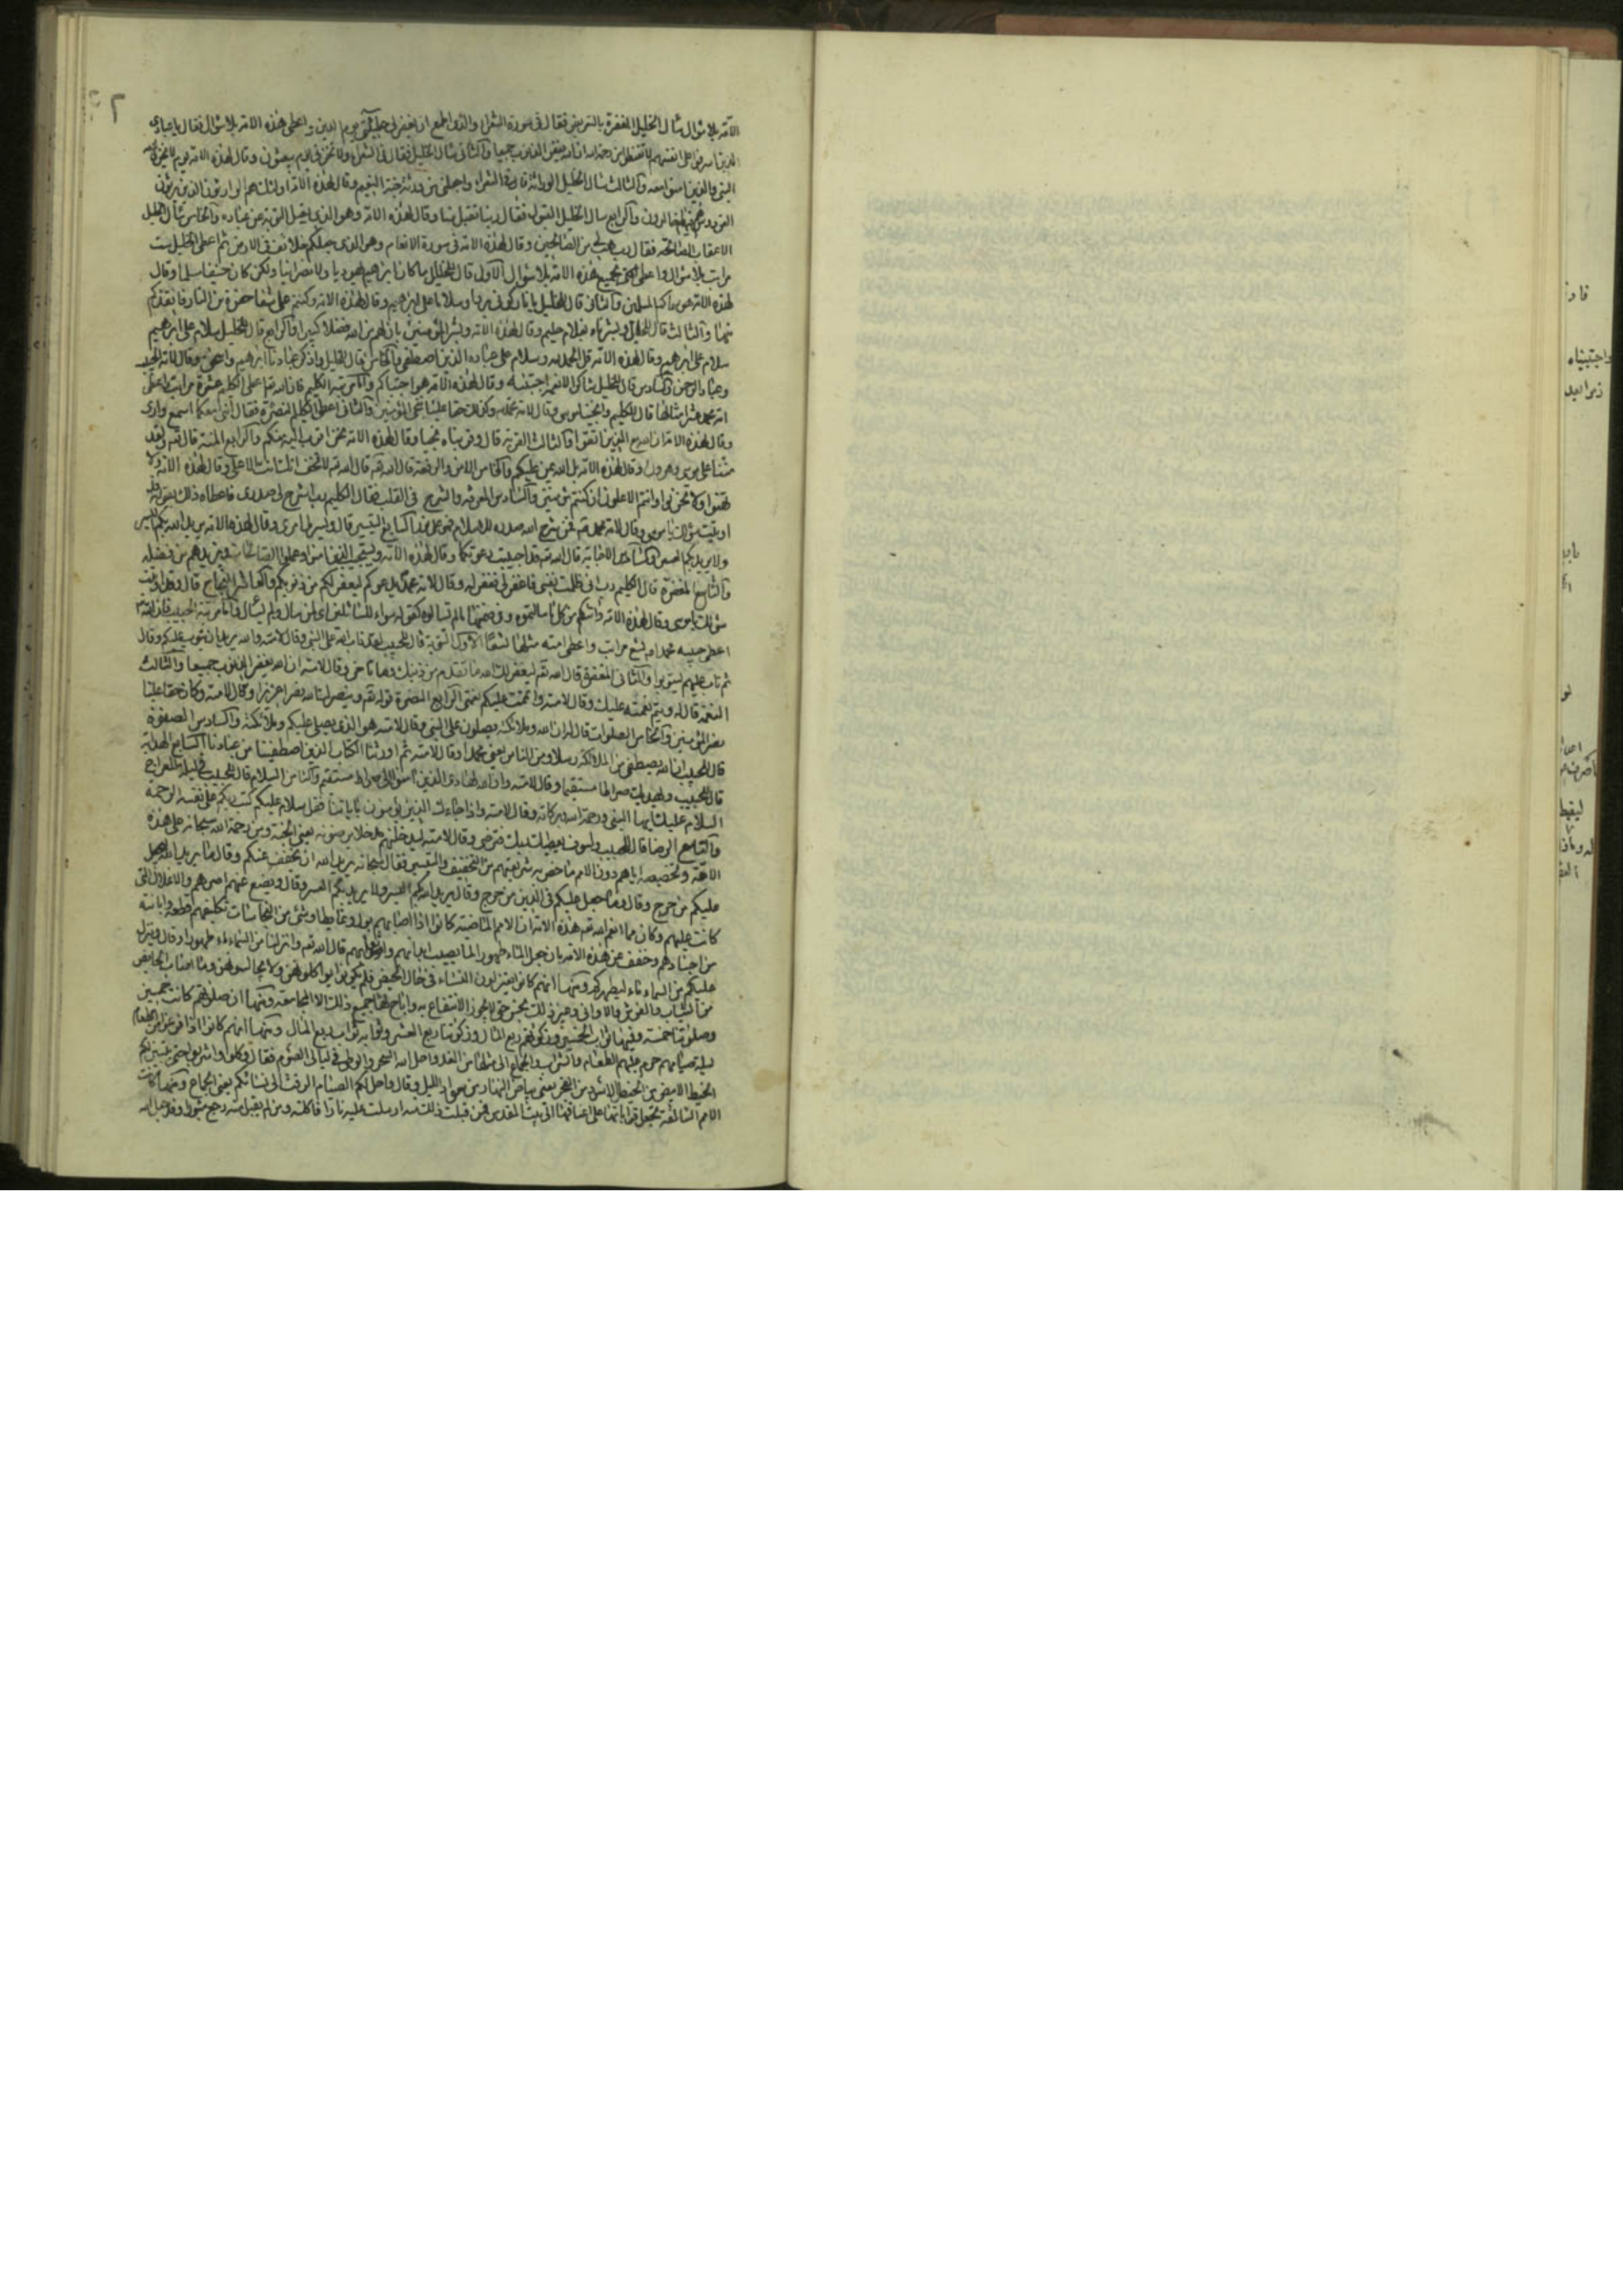 الامّة بلا سؤال سأل الخليل المغفرة بالتعريض فقال فى سورة الشعرا والذى اطمع ان يغفر لى خطيئتى يوم الدين واعطى هذه الامة بلا سؤال فقال يا عبادى
الذين اسرفوا على انفسهم لا تقنطوا من رحمة الله ان الله يغفر الذنوب جميعا والثانى سأل الخليل فقال فى الشعرا ولا تخزنى يوم يبعثون وقال لهذه الامة يوم لا يخزى الله
النبى والذين امنوا معه والثالث سأل الخليل الوراثة قال فى الشعرا واجعلنى من ورثة جنة النعيم وقال لهذه الامة اولئك هم الوارثون الذين يرثون
الفردوس هم فيها خالدون والرابع سال الخليل القبول فقال ربنا تقبل منا وقال لهذه الامة وهو الذى يقبل التوبة عن عباده والخامس سأل الخليل
الاعقاب الصالحة فقال رب هب لى من الصالحين وقال لهذه الامة فى سورة الانعام وهو الذى جعلكم خلائف فى الارض ثم اعطى الخليل ست
مراتب بلا سؤال واعطى جميع هذه الامة بلا سؤال الاول قال للخليل ما كان ابرهيم يهوديا ولا نصرانيا ولكن كان حنيفا مسلما وقال
لهذه الامة هو سماكم المسلمين والثانى قال للخليل يا نار كونى بردا وسلاما على ابرهيم وقال لهذه الامة وكنتم على شفا حفرة من النار فانقذكم
منها والثالث قال للخليل وبشرناه بغلام حليم وقال لهذه الامة وبشر المؤمنين بان لهم من الله فضلا كبيرا والرابع قال للخليل سلام على ابرهيم
سلام على ابرهيم وقال لهذه الامة قل الحمد لله وسلام على عباده الذين اصطفى والخامس قال للخليل واذكر عبادنا ابرهيم واسحق وقال لامة
وعباد الرحمن والسادس قال للخليل شاكرا لانعمه اجتبيه وقال لهذه الامة هو اجتباكم واما مرتبة الكليم فان الله تعا اعطى الكليم عشرة مراتب واعطى
امة محمد عشر امثالها قال للكليم وانجينا موسى وقال لامة محمد وكذلك حقا علينا ننجى المؤمنين والثانى اعطى الكليم النصرة فقال اننى معكما اسمع وارى
وقال لهذه الامة ان الله مع الذين اتقوا والثالث القربة قال وقربناه نجيا وقال لهذه الامة نحن اقرب اليه منكم والرابع المنة قال تعه ولقد
مننا على موسى وهرون وقال لهذه الامة بل الله يمن عليكم والخامس الامن والرفعة قال الله تعه لا تخف انك انت الاعلى وقال لهذه الامة ولا
تهنوا ولا تحزنوا وانتم الاعلون ان كنتم مؤمنين والسادس المعرفة والشرح فى القلب فقال الكليم رب اشرح لى صدرى فاعطاه ذلك بقوله قد
اوتيت سؤلك يا موسى وقال لامة محمد فمن شرح الله صدره للاسلام والسابع التيسير قال ويسر لى امرى وقال لهذه الامة يريد الله بكم اليسر
ولا يريد بكم العسر والثامن الاجابة قال الله تعه قد اجيبت دعوتكما وقال لهذه الامة ويستجيب الذين امنوا وعملوا الصالحات ويزيدهم من فضله
والتاسع المغفرة قال الكليم رب انى ظلمت نفسى فاغفر لى فغفر له وقال لامة محمد يدعوكم ليغفر لكم من ذنوبكم والعاشر النجاح قال قد اوتيت
سؤلك يا موسى وقال لهذه الامة واتيكم من كل ما سالتموه وفى ضمنها ما لم تسالوه كقوله سواء للسائلين اى لمن سال ولم يسأل واما مرتبة الحبيب فان الله
اعطى حبيبه محمدا تسع مراتب واعطى امته مثلها تسعا الاول التوبة قال للحبيب لقد تاب الله على النبى وقال لامته والله يريد ان يتوب عليكم وقال
ثم تاب عليهم ليتوبوا والثانى المغفرة قال الله تعه ليغفر لك الله ما تقدم من ذنبك وما تاخر وقال لامته ان الله يغفر الذنوب جميعا والثالث
النعمة قال له ويتم نعمته عليك وقال لامته واتممت عليكم نعمتى الرابع النصرة قوله تعه وينصرك الله نصرا عزيزا وقال لامته وكان حقا علينا
نصر المؤمنين والخامس الصلوات قال له ان الله وملائكته يصلون على النبى وقال لامته هو الذى يصلى عليكم وملائكته والسادس الصفوة
قال للحبيب الله يصطفى من الملائكة رسلا ومن الناس يعنى محمدا وقال لامته ثم اورثنا الكتاب الذين اصطفينا من عبادنا السابع الهداية
قال للحبيب ويهديك صراطا مستقيما وقال لامته وان الله لهادى الذين امنوا الى صراط مستقيم والثامن السلام قال للحبيب فى ليلة المعراج
السلام عليك ايها النبى ورحمة الله وبركاته وقال لامته واذا جاءك الذين يؤمنون باياتنا فقل سلام عليكم كتب ربكم على نفسه الرحمة
والتاسع الرضا قال للحبيب ولسوف يعطيك ربك فترضى وقال لامته ليدخلنهم مدخلا يرضونه يعنى الجنة ومن رحمة الله سبحانه على هذه
الامّة وتخصيصه اياهم دون الامم ما خص به شريعتهم من التخفيف والتيسير فقال سبحانه يريد الله ان يخفف عنكم وقال ما يريد الله ليجعل
عليكم من حرج وقال وما جعل عليكم فى الدين من حرج وقال يريد الله بكم اليسر ولا يريد بكم العسر وقال ويضع عنهم اصرهم والاغلال التى
كانت عليهم وكان مما انعم الله تعه هذه الامة ان الامم الماضية كانوا اذا اصابهم بول او غايط او شئ من النجاسات تكليفهم قطعه وابانته
من اجسادهم وخفف عن هذه الامة بان جعل الماء طهورا لما يصيب ابدانهم واثوابهم قال الله تعه وانزلنا من السماء ماء طهورا وقال وينزل
عليكم من السماء ماء ليطهركم ومنها انهم كانوا يعتزلون النساء فى حال الحيض فلم يكونوا يواكلوهن ولا يجالسوهن وما اصاب الحايض
من الثياب والفرش والاوانى وغير ذلك نجس حتى لا يجوز الانتفاع به واباح لنا جميع ذلك الا المجامعة ومنها ان صلوتهم كانت خمسين
وصلوتنا خمسة وفيها ثواب الخمسين وزكوتهم ربع المال وزكوتنا ربع العشر وثوابه ثواب ربع المال ومنها انهم كانوا اذا فرغوا من الطعام
ليلة صيامهم حرم عليهم الطعام والشراب والجماع الى مثلها من الغد واحل الله السحر والوطى فى ليالى الصوم فقال وكلوا واشربوا حتى يتبين لكم
الخيط الابيض من الخيط الاسود من الفجر يعنى بياض النهار من سواد الليل وقال احل لكم ليلة الصيام الرفث الى نسائكم يعنى الجماع ومنها كانت
الامم السالفة تحمل قرابانها على اعناقها الى بيت المقدس فمن قبلت ذلك منه ارسلت عليه نارا فاكلته ومن لم يقبل منه رجع مثبورا وقد جعل الله
واجتبيناه